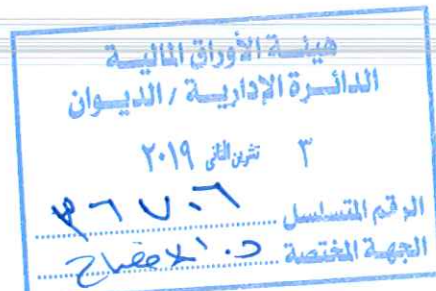 هيئة الأوراق المالية
الدائرة الإدارية / الديوان
٣ تشرين الثاني ٢٠١٩
الرقم المتسلسل ٣٦٧٠٦
الجهة المختصة د. الافصاح